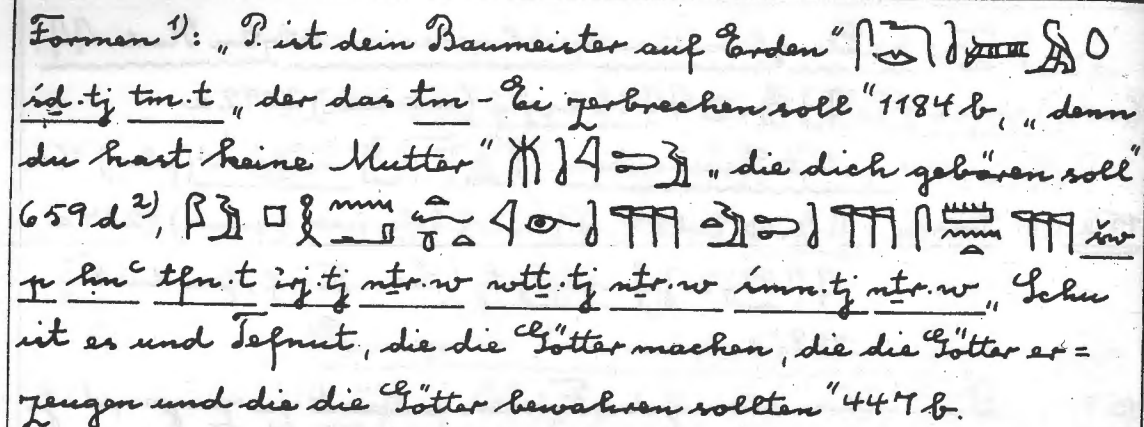 Formen ¹⁾: „P. ist dein Baumeister auf Erden“
śd.tj tm.t „der das tm-Ei zerbrechen soll“ 1184 b, „denn
du hast keine Mutter“ „die dich gebären soll“
659 d ²⁾, šw
p ḥnꜥ tfn.t irj.tj nṯr.w wtṯ.tj nṯr.w śmn.tj nṯr.w „Schu
ist es und Tefnut, die die Götter machen, die die Götter er=
zeugen und die die Götter bewahren sollten“ 447 b.